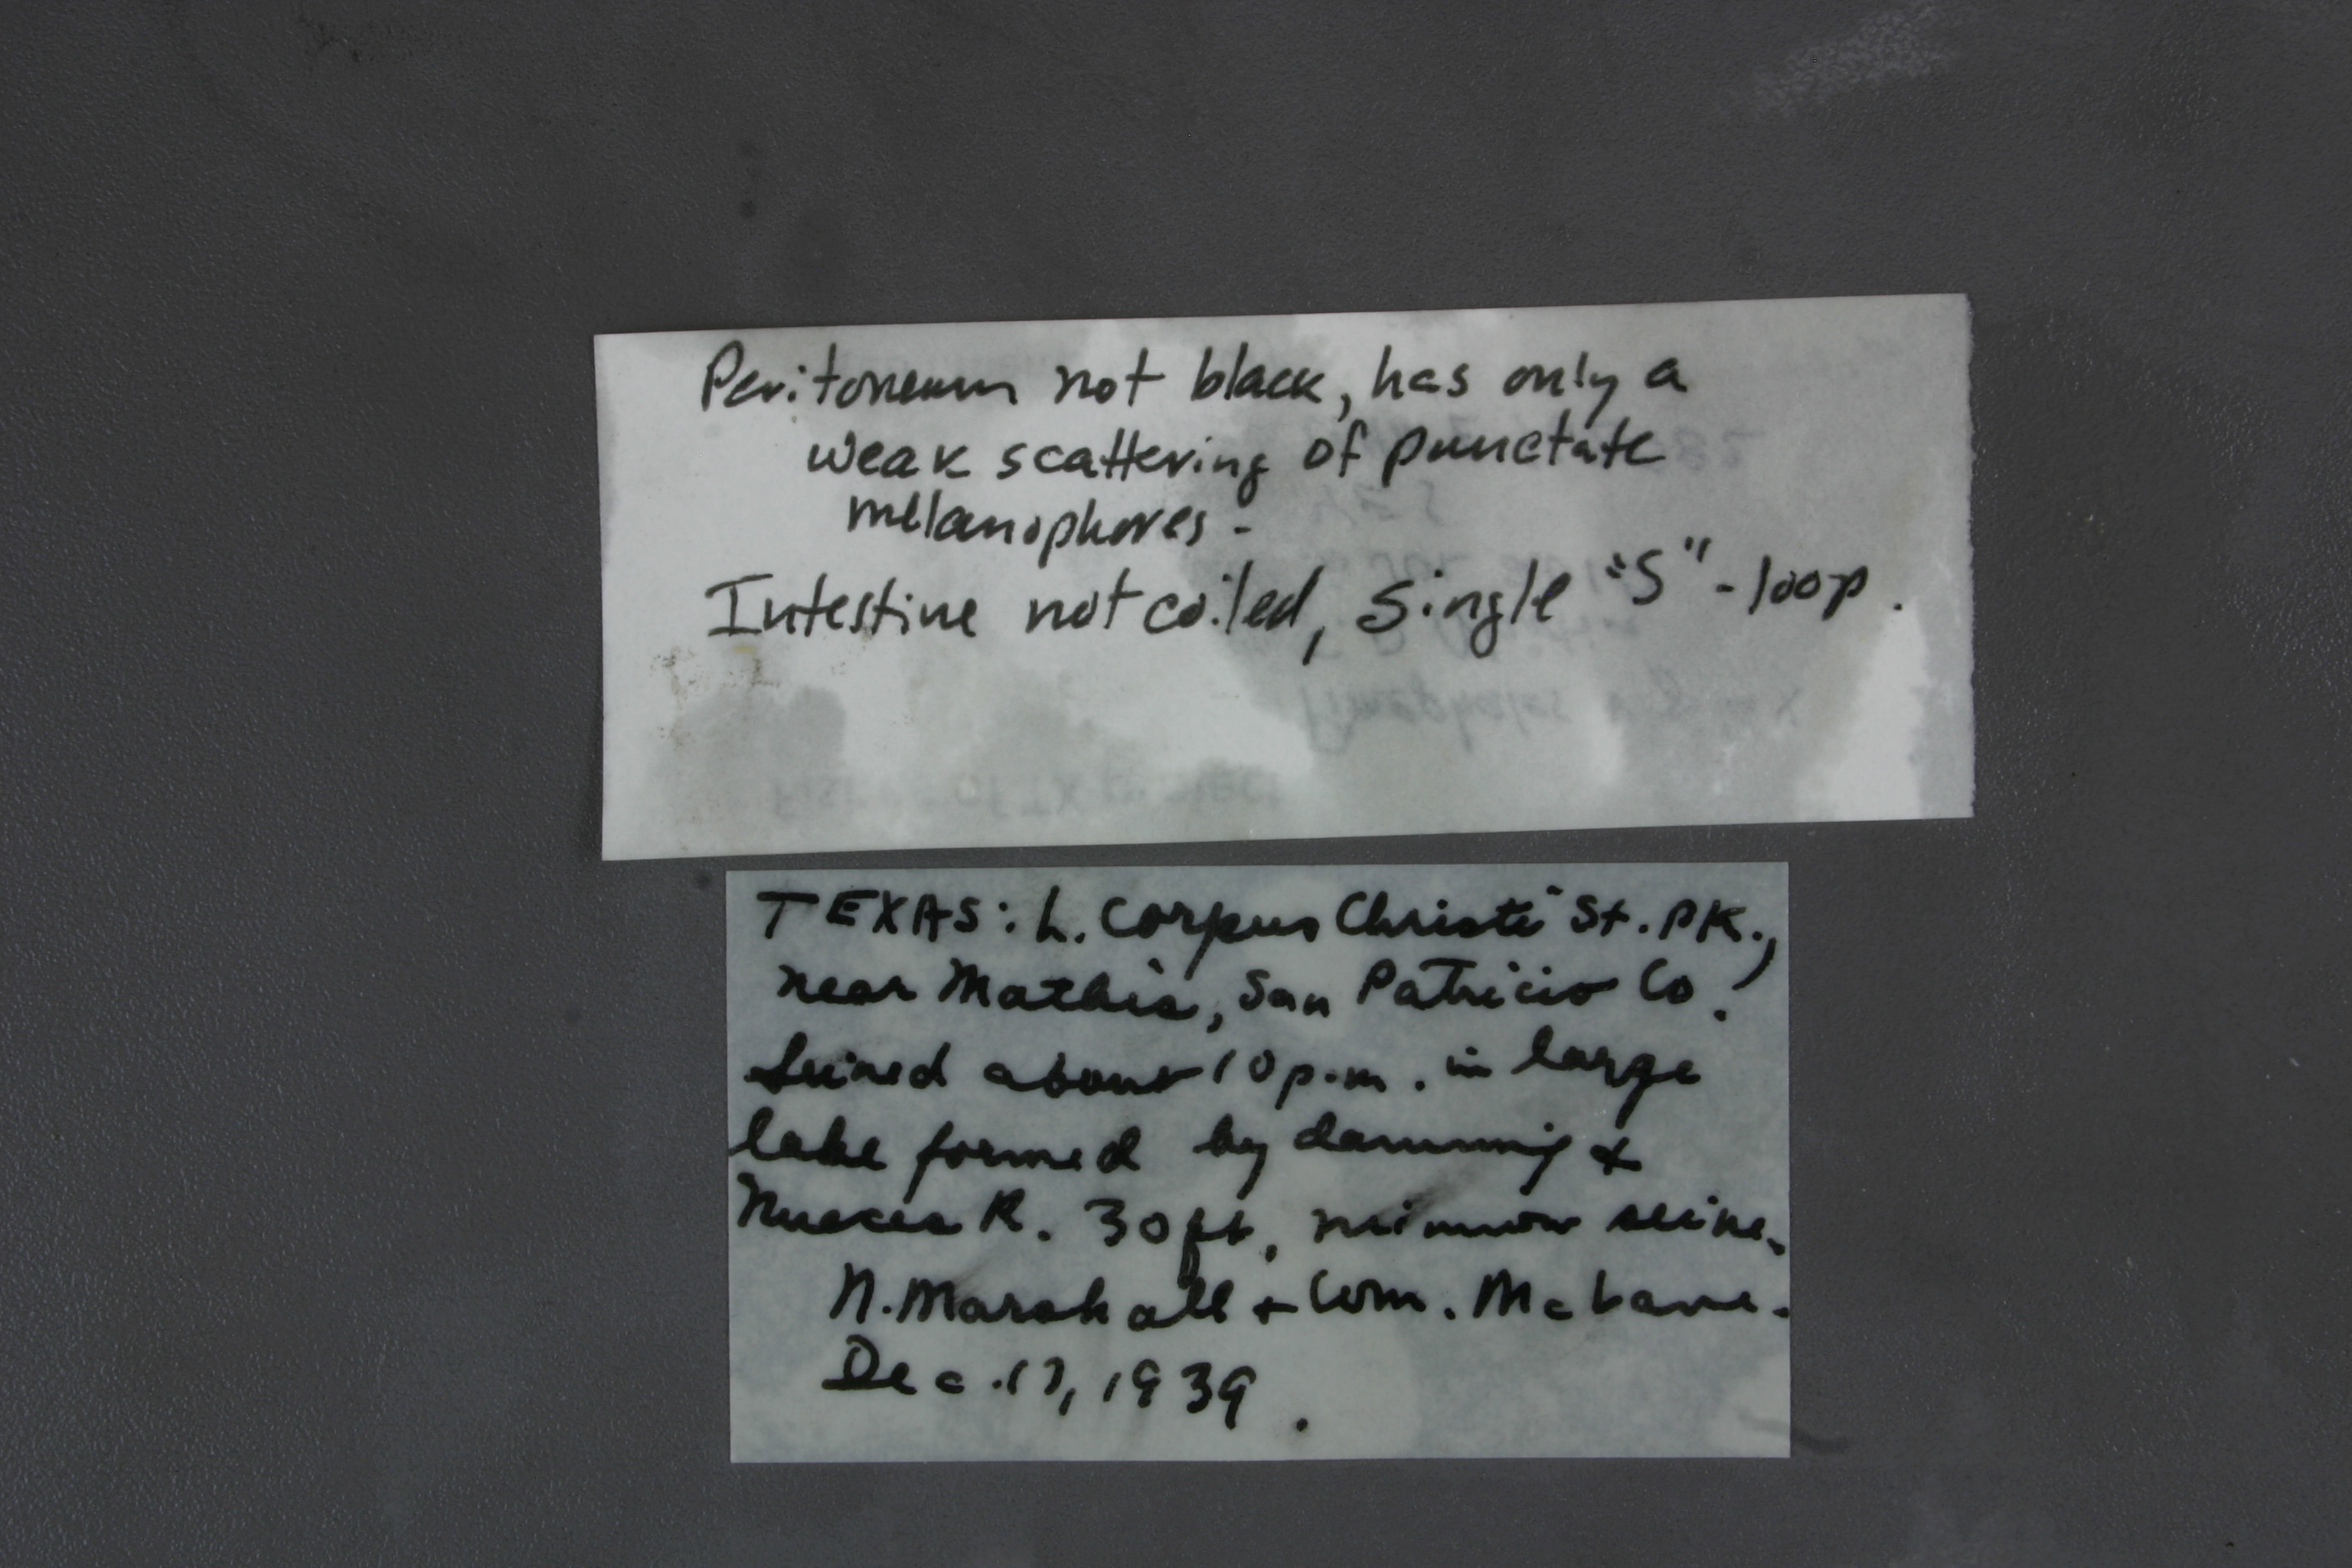 Peritoneum not black, has only a
weak scattering of punctate
melanophores.
Intestine not coiled, single "S"-loop.
TEXAS: L. Corpus Christi St. PK.,
near Mathis, San Patricio Co.
Seined about 10 p.m. in large
lake formed by damming of
Nueces R. 30 ft. minnow seine.
N. Marshall + Wm. McLane.
Dec. 17, 1939.